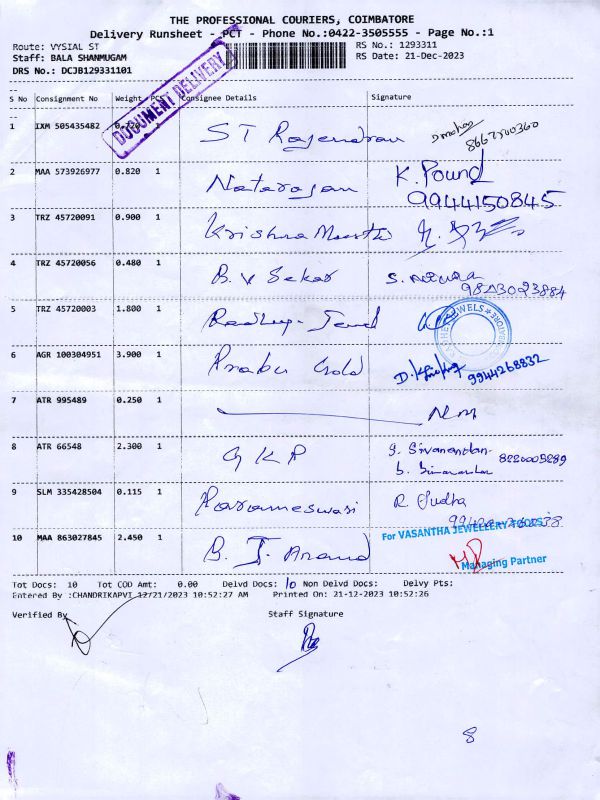 THE PROFESSIONAL COURIERS, COIMBATORE
Delivery Runsheet - PCT - Phone No.:0422-3505555 - Page No.:1
Route: VYSIAL ST RS No.: 1293311
Staff: BALA SHANMUGAM RS Date: 21-Dec-2023
DRS No.: DCJB129331101
DOCUMENT DELIVERY
S No Consignment No Weight PCS Consignee Details Signature
1 IXM 505435482 ST Rajendran
2 MAA 573926977 0.820 1 Natarajan K. Pound
9944150845
3 TRZ 45720091 0.900 1 Krishna
4 TRZ 45720056 0.480 1 B. V Sekar
5 TRZ 45720003 1.800 1
6 AGR 100304951 3.900 1 Prabu Gold
9944268832
7 ATR 995489 0.250 1
8 ATR 66548 2.300 1 G K P g. Sivanandan
9 SLM 335428504 0.115 1 Parameswari R. Sudha
10 MAA 863027845 2.450 1 B. J. Anand For VASANTHA JEWELLERY
Managing Partner
Tot Docs: 10 Tot COD Amt: 0.00 Delvd Docs: 10 Non Delvd Docs: Delvy Pts:
Entered By :CHANDRIKAPVI 12/21/2023 10:52:27 AM Printed On: 21-12-2023 10:52:26
Verified By Staff Signature
8